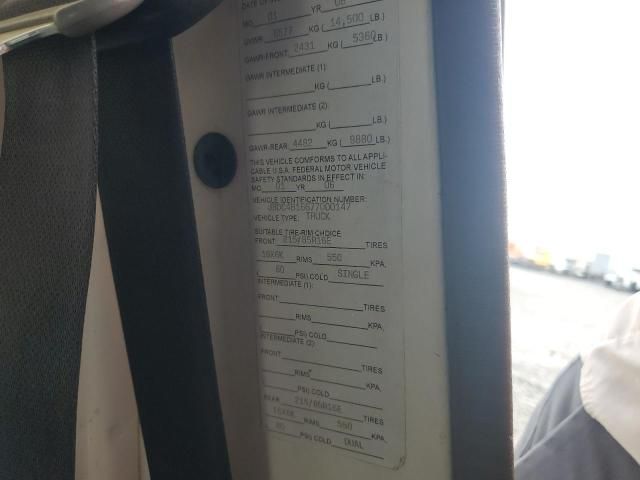 DATE OF
MO. 01 YR 06
GVWR 6577 KG ( 14,500 LB.)
GAWR-FRONT: 2431 KG ( 5360 LB.)
GAWR INTERMEDIATE (1):
KG ( LB.)
GAWR INTERMEDIATE (2):
KG ( LB.)
GAWR-REAR: 4482 KG ( 9880 LB.)
THIS VEHICLE CONFORMS TO ALL APPLI-
CABLE U.S.A. FEDERAL MOTOR VEHICLE
SAFETY STANDARDS IN EFFECT IN:
MO 01 YR 06
VEHICLE IDENTIFICATION NUMBER:
VEHICLE TYPE: TRUCK
SUITABLE TIRE-RIM CHOICE
FRONT 215/85R16E TIRES
16X6K RIMS 550 KPA.
( 80 PSI) COLD SINGLE
INTERMEDIATE (1):
FRONT TIRES
RIMS KPA.
( PSI) COLD
INTERMEDIATE (2)
FRONT TIRES
RIMS KPA.
( PSI) COLD
REAR 215/85R16E TIRES
16X6K RIMS 550 KPA.
( 80 PSI) COLD DUAL